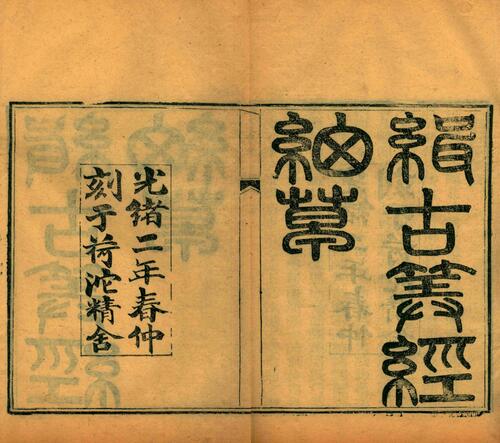 緝古筭經
細草
光緒二年春仲
刻于荷沱精舍